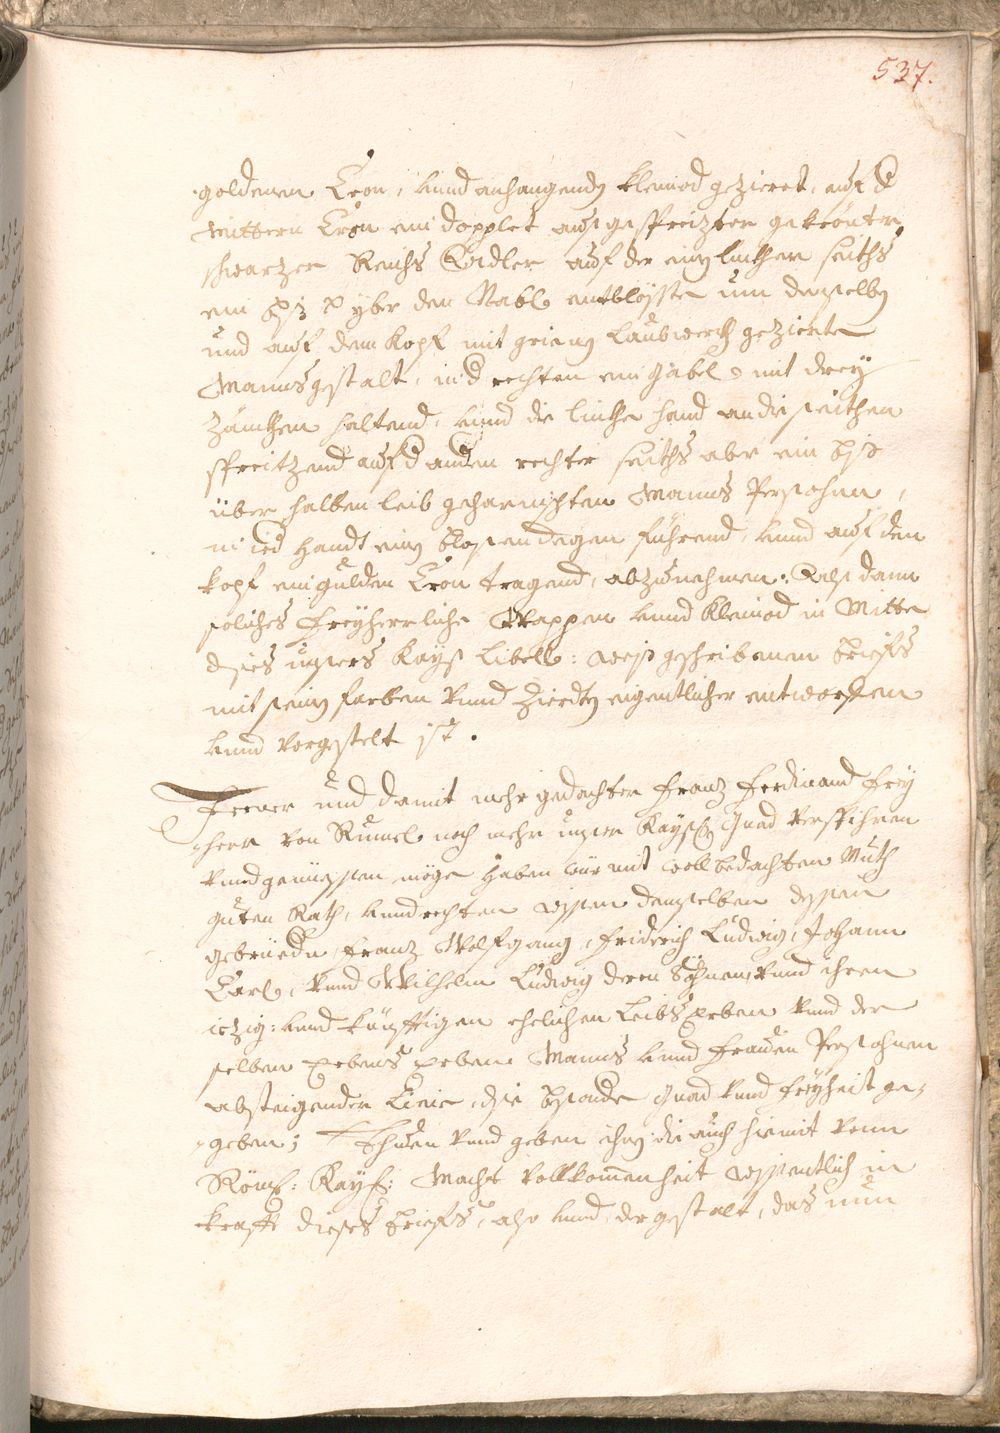 537.
goldenen Cron, unnd anhangendn kleinod gezieret, auf d
mittern Cron ein dopplet auß gespreizter gekrönter
schwarzer Reichs Adler auf der einen linkhen seiths
ein biß yber den Nabl entblößte umb denselben
und auf dem Kopf mit grienen Laubwerch gezierte
Mannsgestalt, in d rechten ein gabel mit drey
Zünkhen haltend, unnd die linkhe hand an die seithen
spreitzend auf d andern rechter seiths aber ein biß
über halben leib geharnischten Manns Persohn,
in ied handt einen blossen degen führend, unnd auf den
kopf ein gulden Cron tragend, abzunehmen: Alß dann
solches freyherrliche Wappen unnd kleinod in Mitte
dises unsers Kays Libell: weiß geschribenen brieffs
mit seinen farben unnd Zierdten eigentlicher entworffen
unnd vorgestelt ist.
Ferner und damit mehr gedachter Franz Ferdinand frey
herr von Rumel noch mehr unser Kaysl gnad verspihren
unnd genüessen möge haben wür mit wollbedachten Muth
guten Rath, unnd rechten wissen demselben dessen
gebrüedn Franz Wolfgang, Friderich Ludwig, Johann
Carl, unnd Wilhelm Ludwig deren Söhnen, unnd ihren
iezig: unnd künfftigen ehelichen Leibs Erben unnd der
selben Erbens Erben Manns unnd frauen Persohnen
absteigender Linie, dise bsonde gnad unnd freyheit ge-
geben; Thuen unnd geben ihnen die auch hiemit vonn
Röml: Kayl: Macht vollkommenheit wissentlich in
krafft dieses brieffs, also unnd dergestalt, das nun